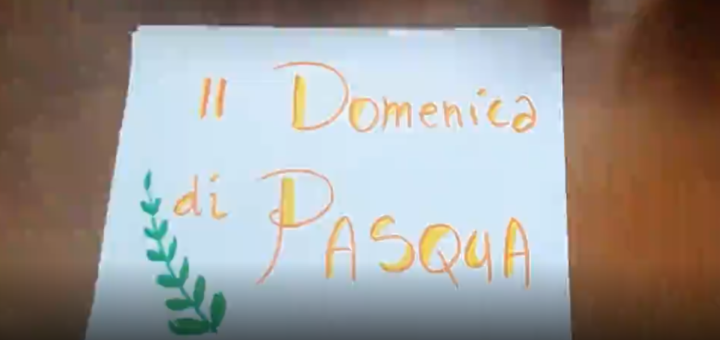 II Domenica
di PASQUA